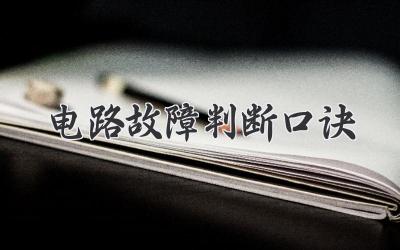 电路故障判断口诀